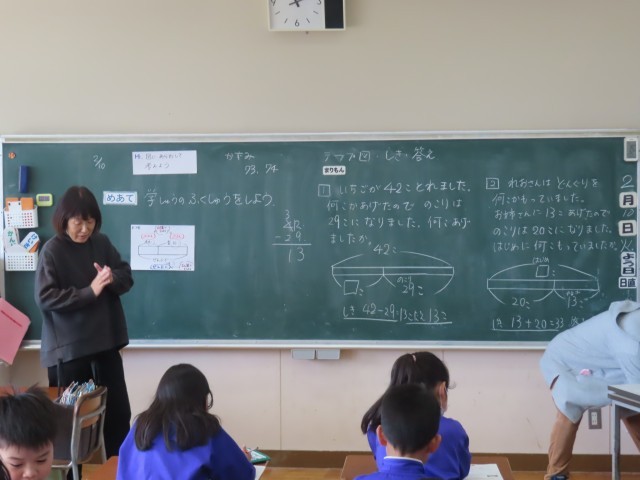 2/10
かずみ
73、74
テープ図・しき・答え
めあて
学しゅうのふくしゅうをしよう
まりもん
1 いちごが42ことれました。
何こかあげたので のこりは
29こになりました。何こあげ
ましたか。
42こ
のこり
29こ
しき 42-29=13 こたえ 13こ
3
42
-29
13
2 れおさんは どんぐりを
何こかもっていました。
お姉さんに13こあげたので
のこりは20こになりました。
はじめに何こもっていましたか。
はじめ
20こ
13こ
しき 13+20=33
2
月
日
日直
6